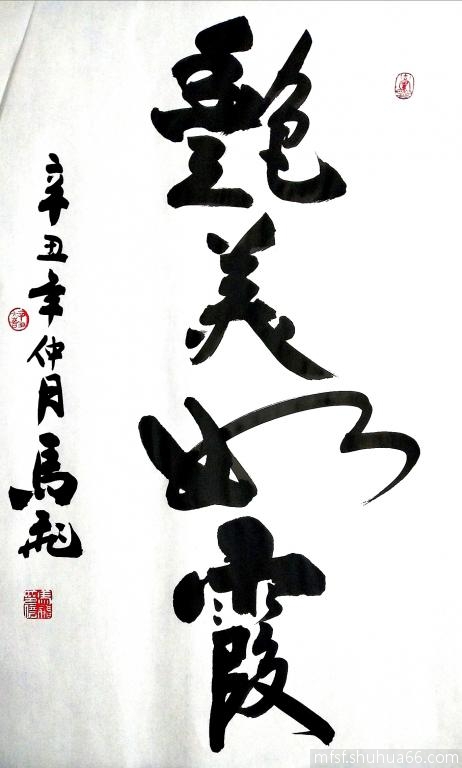 艷美如霞
辛丑年仲月馬飛
mfsf.shuhua66.com